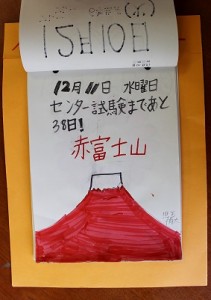 12月10日
12月11日 水曜日
センター試験まであと
38日!
赤富士山